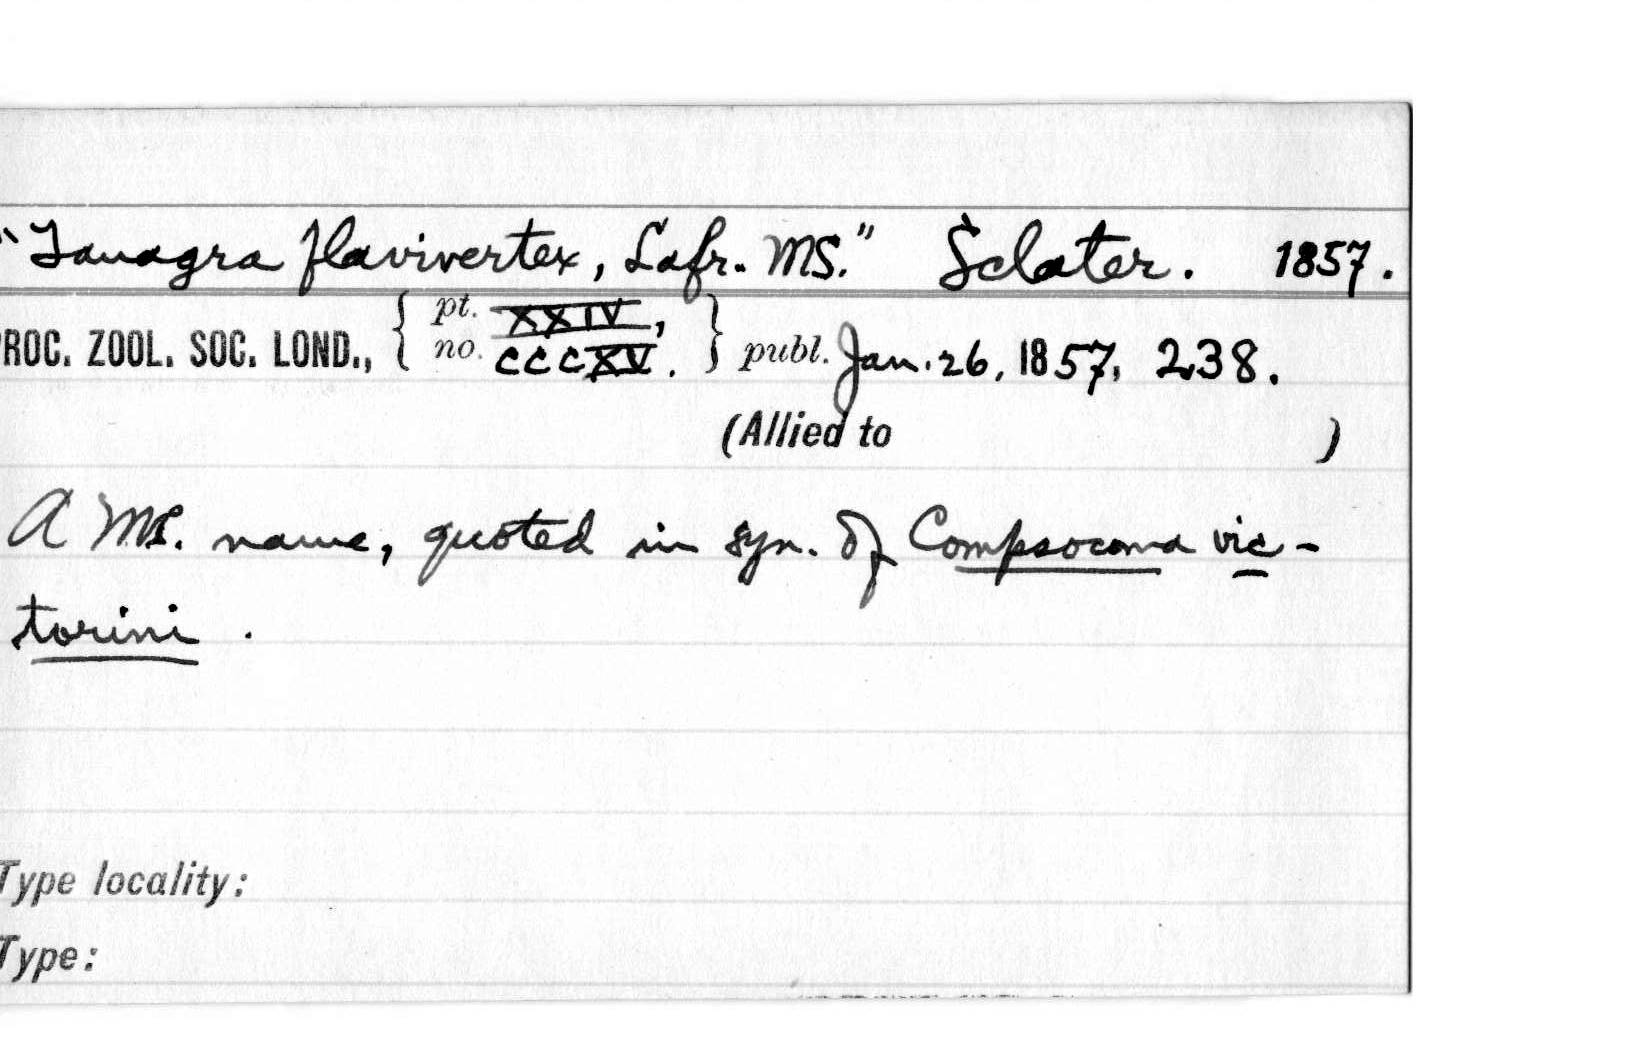 "Tanagra flavivertex, Lafr. MS." Sclater. 1857.
PROC. ZOOL. SOC. LOND., { pt. XXIV, no. CCCXV. } publ. Jan. 26, 1857, 238.
(Allied to )
A MS. name, quoted in syn. of Compsocoma vic-
torini.
Type locality:
Type: